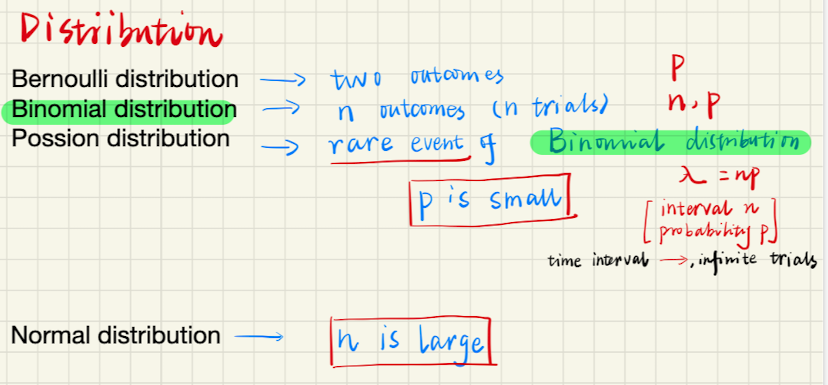 Distribution
Bernoulli distribution → two outcomes p
Binomial distribution → n outcomes (n trials) n, p
Possion distribution → rare event of Binomial distribution
p is small
λ = np
[interval n
probability p]
time interval →, infinite trials
Normal distribution → n is large